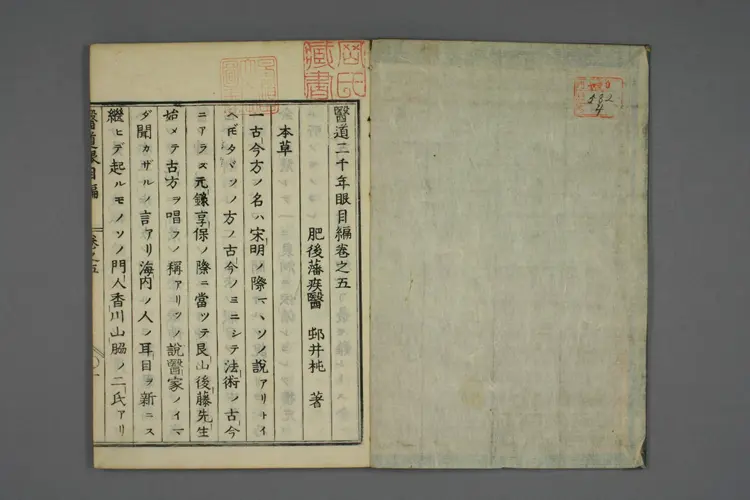 醫道二千年眼目編卷之五
肥後藩疾醫 邨井杶 著
本草
一古今方ノ名ハ宋明ノ際ヨリソノ説アリトイ
ヘ𪜈タヾソノ方ノ古今ノミニシテ法術ノ古今
ニアラズ元錄享保ノ際ニ當ツテ艮山後藤先生
始メテ古方ヲ唱フノ稱アリソノ說醫家ノイマ
ダ聞カザルノ言アリ海内ノ人ノ耳目ヲ新ニス
繼ヒデ起ルモノソノ門人香川山脇ノ二氏アリ
醫道二千年眼目編
卷之五
藏書